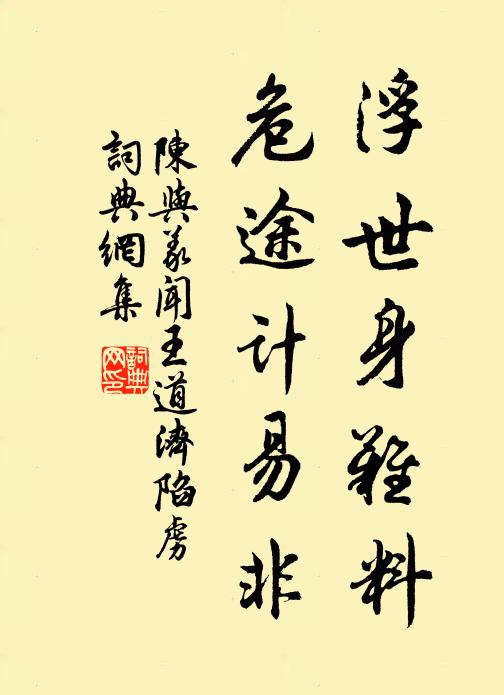 浮世身難料
危途计易非
陳與義聞王道濟陷虜
詞典網集
詞典网印